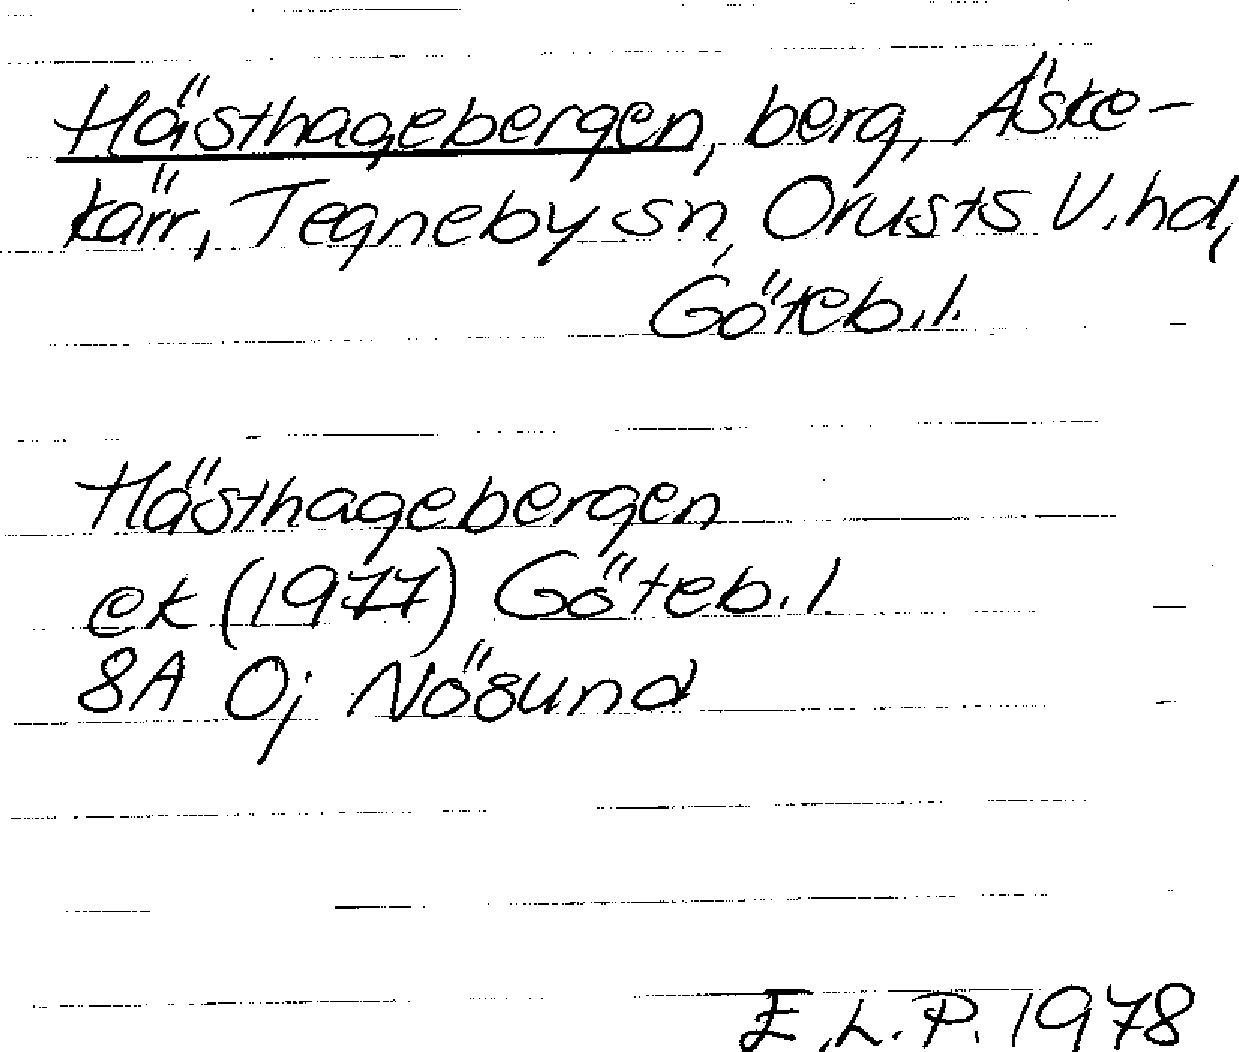 Hästhagebergen, berg, Äske-
kärr, Tegneby sn, Orusts V. hd,
Göteb. l.
Hästhagebergen
ek (1977) Göteb. l.
8A 0j Nösund
E. L. P. 1978